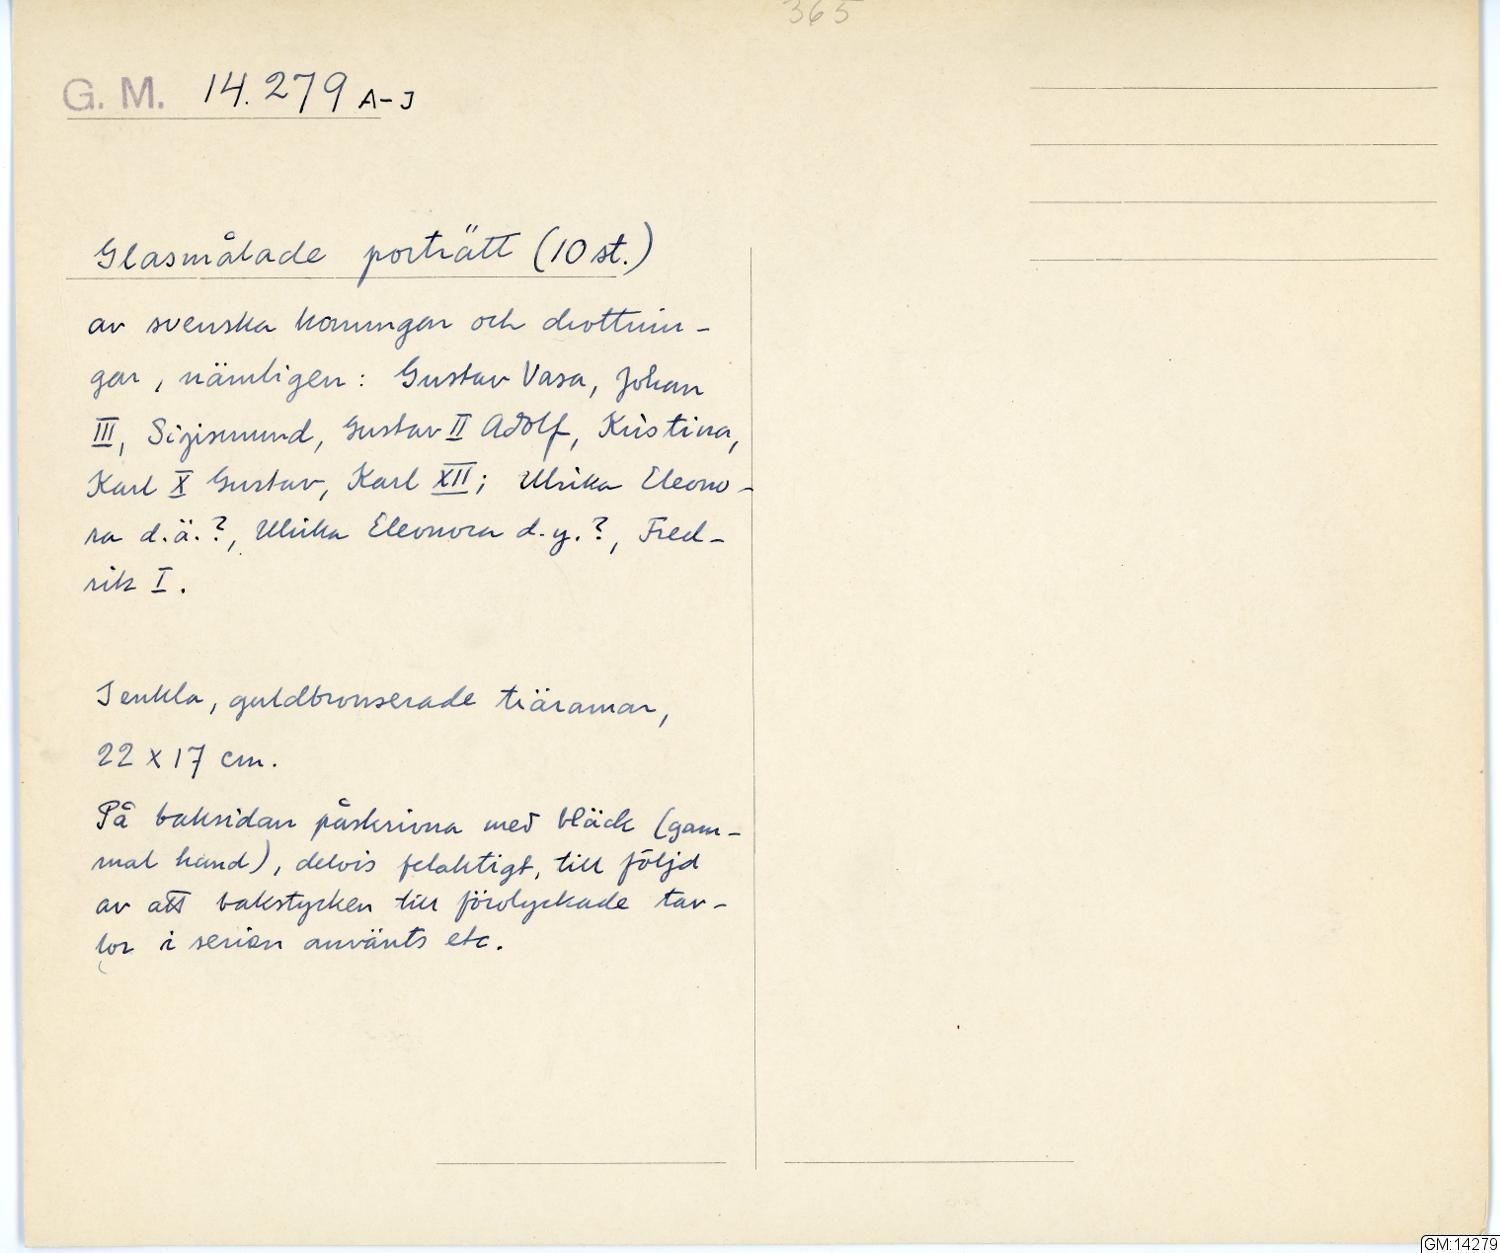 365
G. M. 14.279 A-J
Glasmålade porträtt (10 st.)
av svenska konungar och drottnin-
gar, nämligen: Gustav Vasa, Johan
III, Sigismund, Gustav II Adolf, Kristina,
Karl X Gustav, Karl XII; Ulrika Eleono-
ra d.ä.?, Ulrika Eleonora d.y.?, Fred-
rik I.
I enkla, guldbronserade träramar,
22 x 17 cm.
På baksidan påskrivna med bläck (gam-
mal hand), delvis felaktigt, till följd
av att bakstycken till förolyckade tav-
lor i serien använts etc.
GM:14279